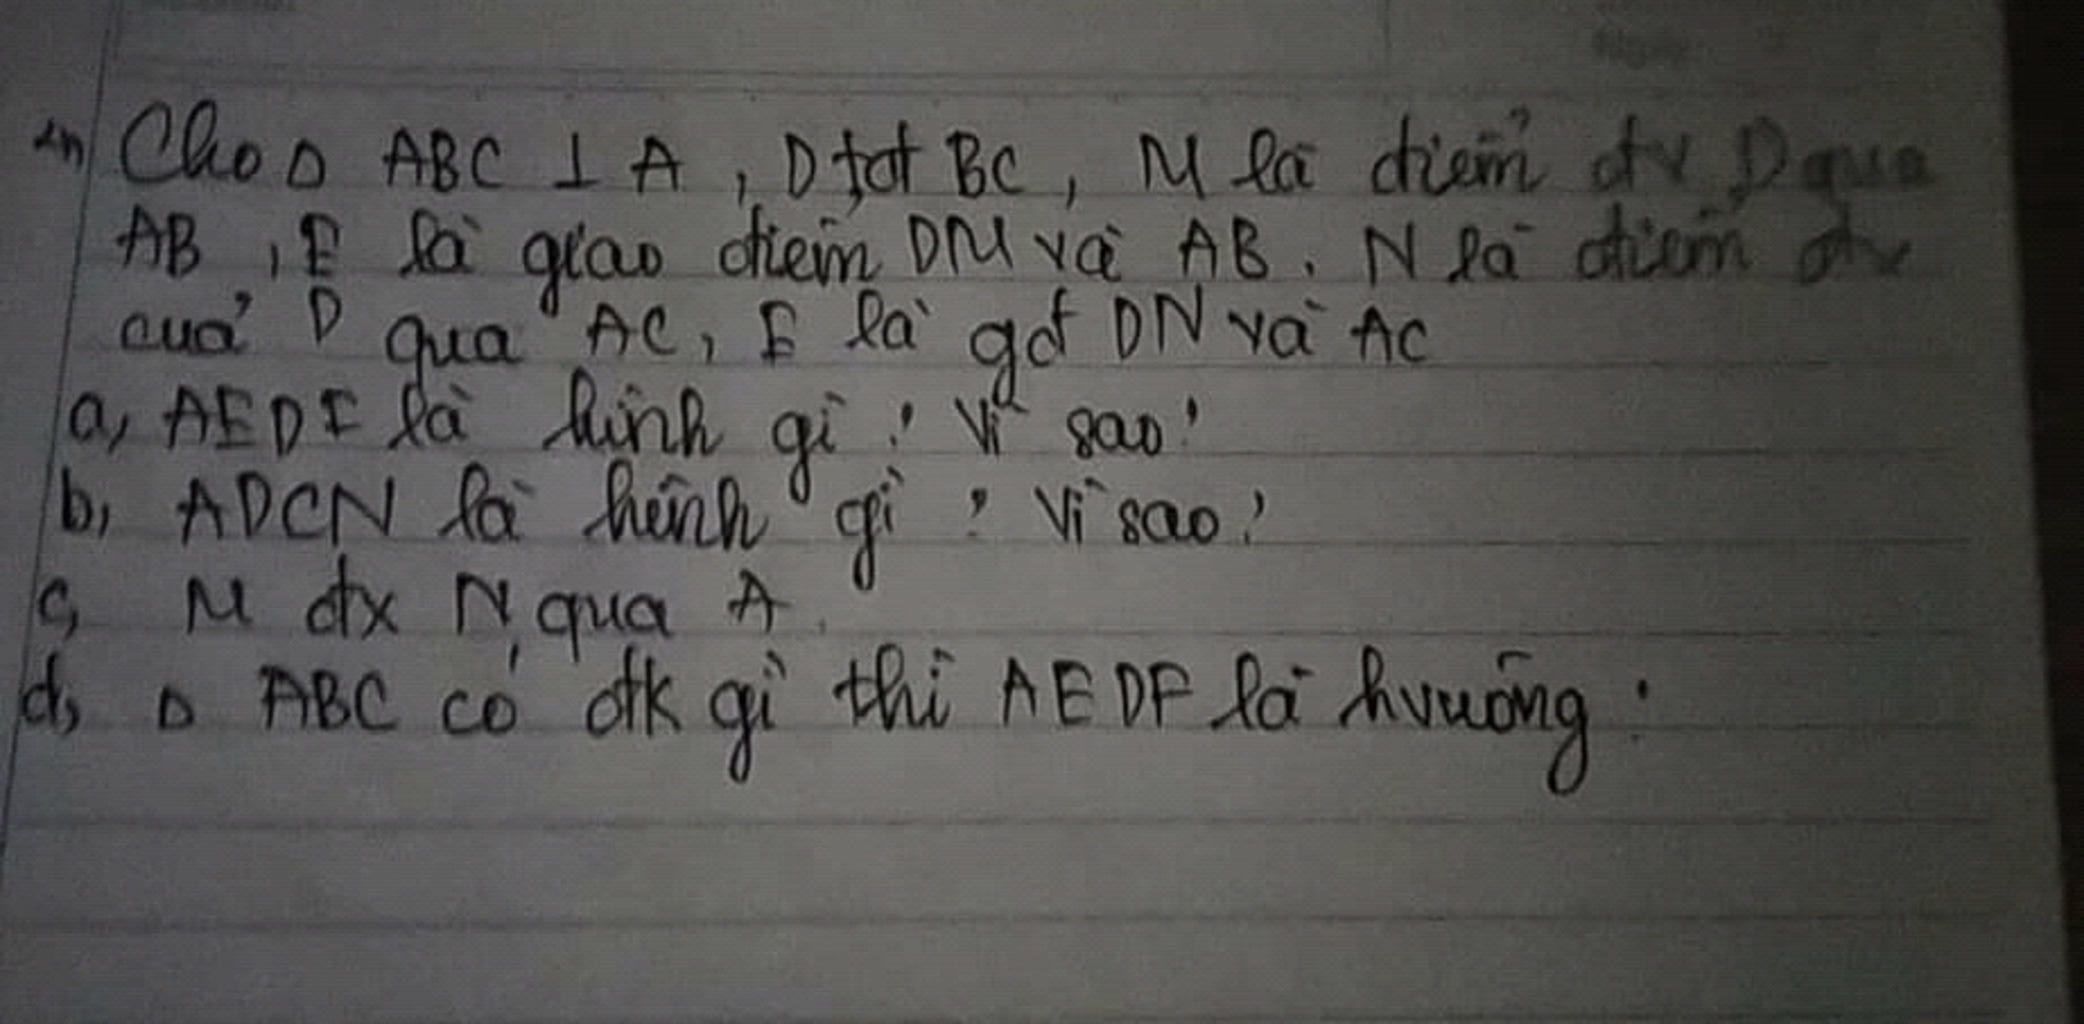 Cho Δ ABC ⊥ A, D tđ BC, M là điểm đx D qua
AB, E là giao điểm DM và AB. N là điểm đx
của D qua AC, F là gđ DN và AC
a, AEDF là hình gì? Vì sao?
b, ADCN là hình gì? Vì sao?
c, M đx N qua A.
d, Δ ABC có đk gì thì AEDF là hvuông.